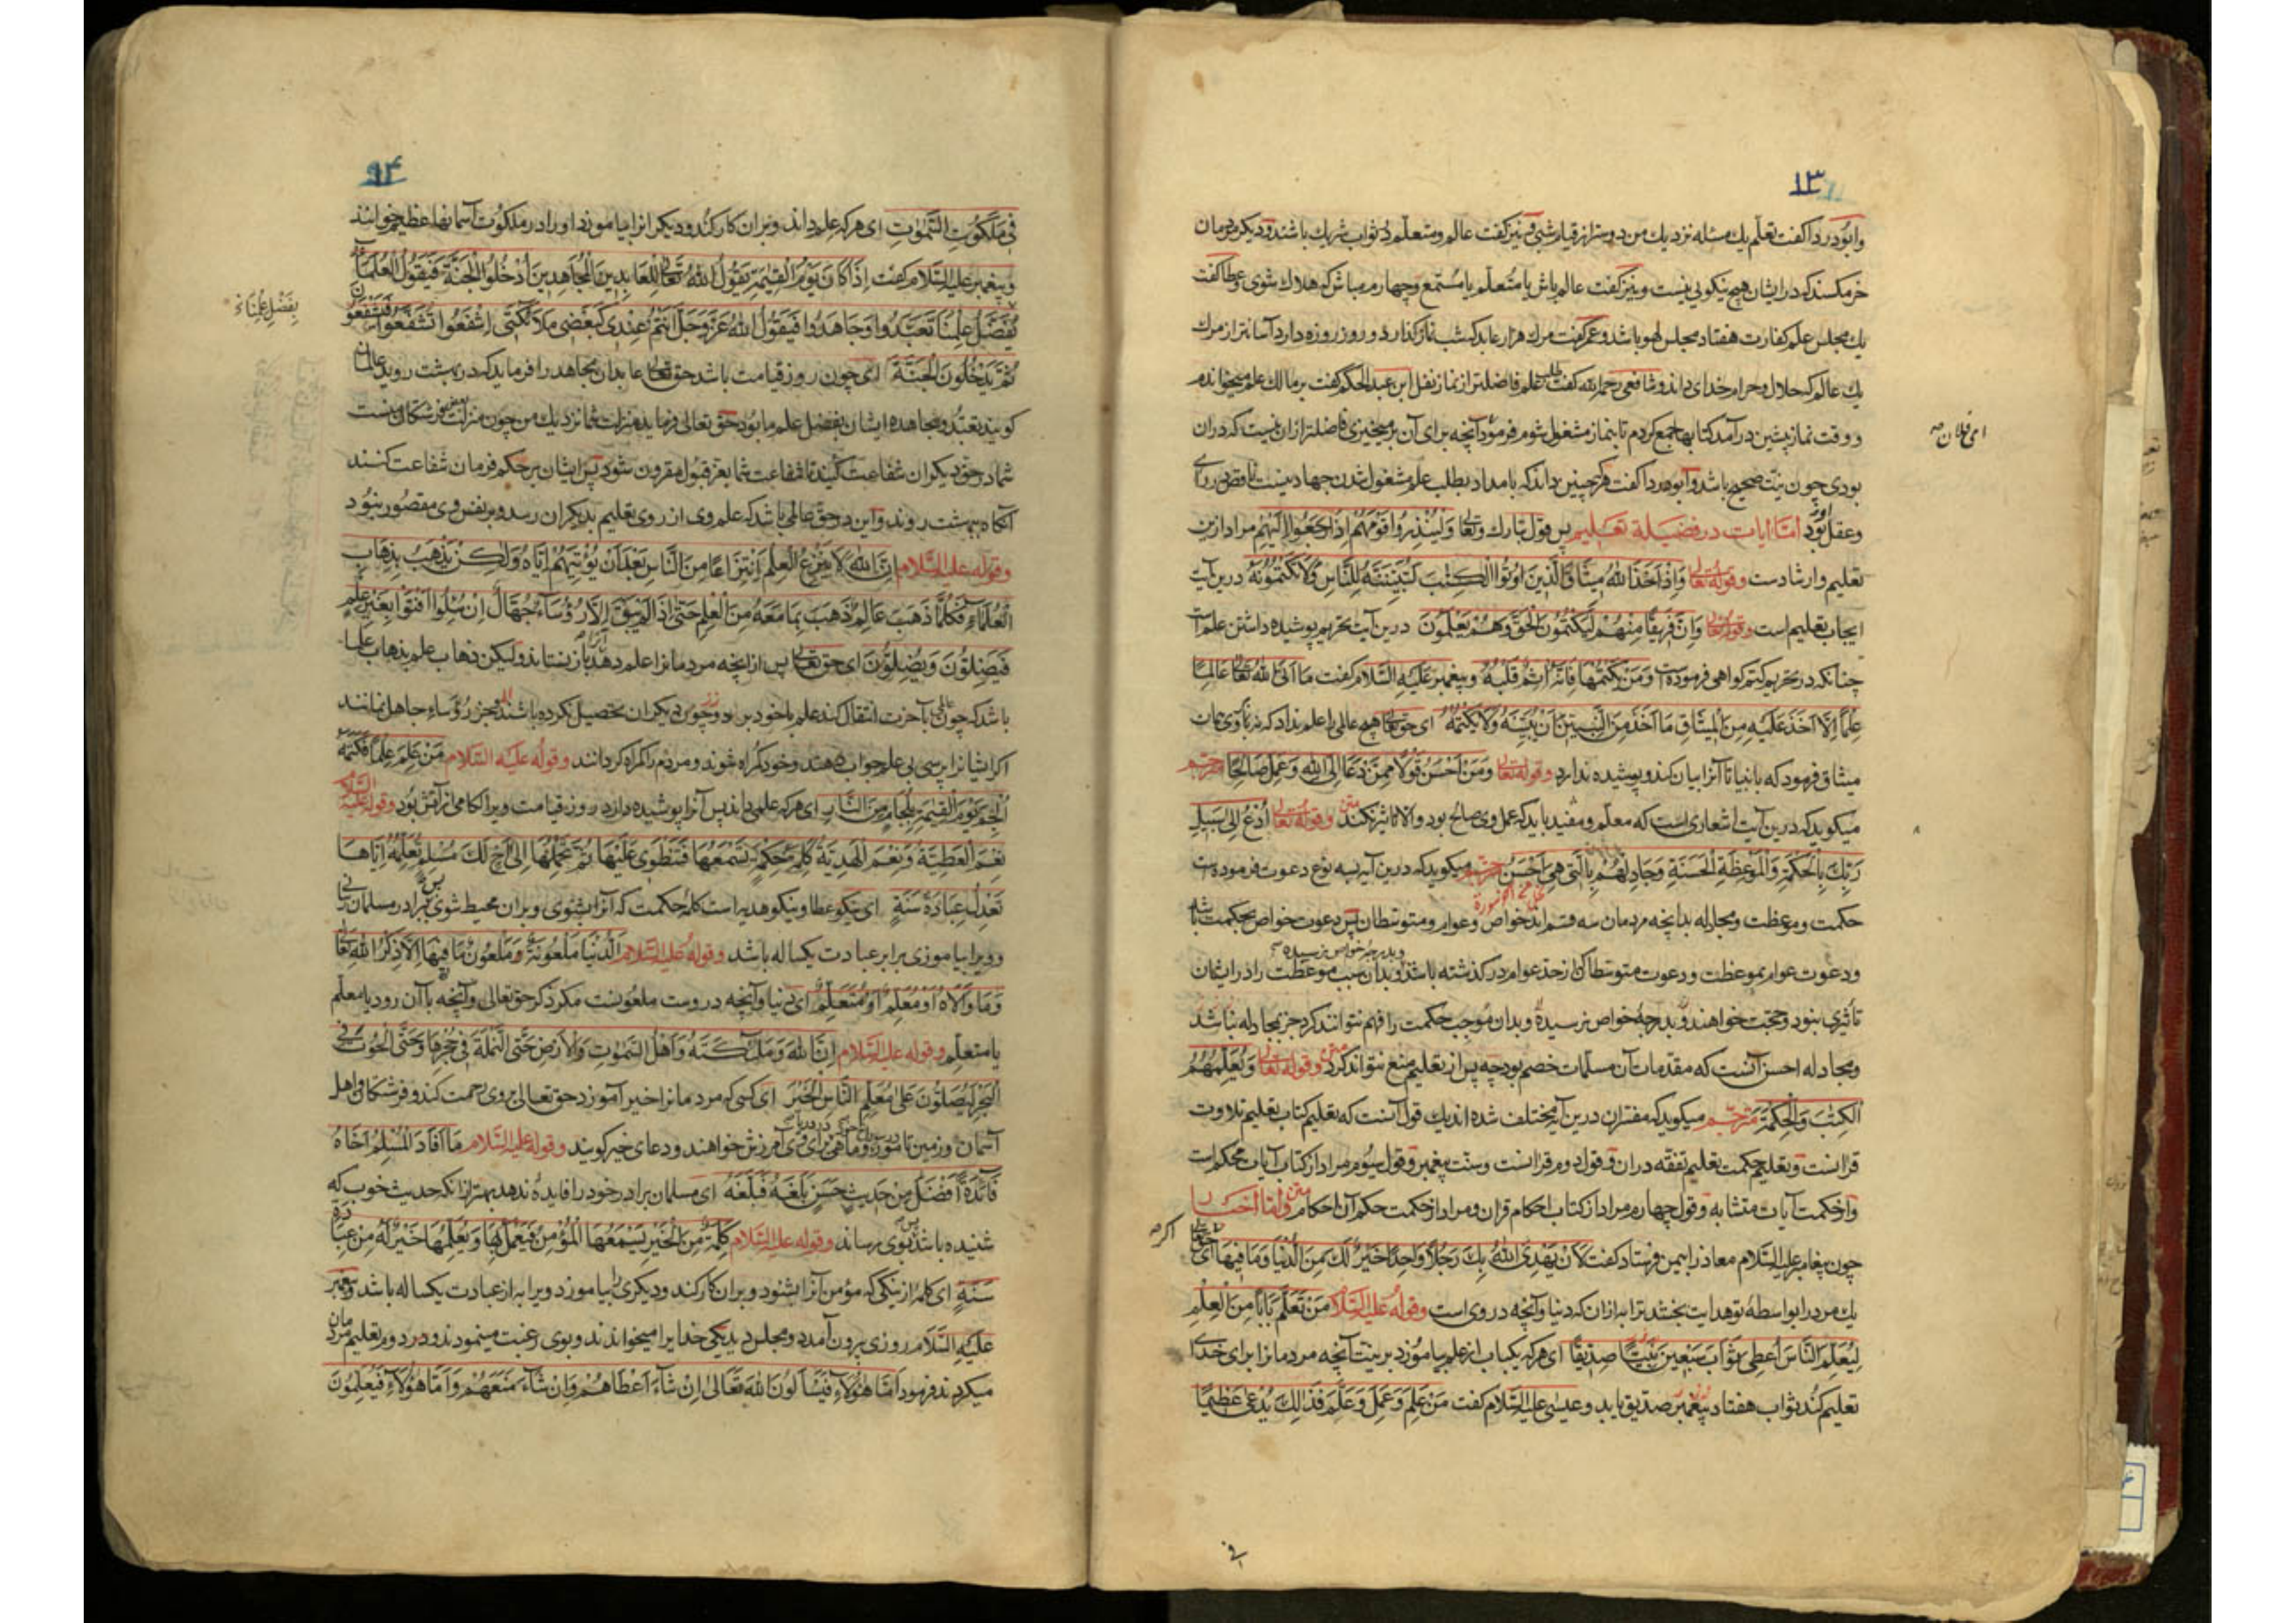 ١٣
وابودردا كفت تعلّم يك مسئله نزديك من دوستر از قيام شبى و نيز كفت عالم ومتعلّم در ثواب شريك باشند و ديكر مردمان
خرمكسند كه در ايشان هيچ نيكويى نيست و نيز كفت عالم باش يا متعلّم يا مستمع وچهارم مباش كه هلاك شوى وعطا كفت
يك مجلس علم كفارت هفتاد مجلس لهو باشد و عمر كفت مرك هزار عابد كه شب نماز كذارد و روز روزه دارد آسانتر از مرك
يك عالم كه حلال وحرام خداى داند و شافعى رحمه الله كفت طلب علم فاضلتر از نماز نفل ابن عبد الحكم كفت بر مالك علم ميخواندم
و وقت نماز پيشين در آمد كتابها جمع كردم تا بنماز مشغول شوم فرمود آنچه براى آن برميخيزى فاضلتر از ان نيست كه در ان
امى فلان صح
بودى چون نيّت صحيح باشد وابودردا كفت هركه چنين داند كه بامداد بطلب علم مشغول شدن جهاد نيست ناقص در راى
وعقل بود امّا آيات در فضيلة تعليم پس قول تبارك وتعالى وَلِيُنْذِرُوا قَوْمَهُمْ اِذَا رَجَعُوا اِلَيْهِمْ مراد ازين
تعليم وارشادست وقوله تعالى وَاِذْ اَخَذَ اللّٰهُ مِيثَاقَ الَّذِينَ اُوتُوا الْكِتٰبَ لَتُبَيِّنُنَّهُ لِلنَّاسِ وَلَا تَكْتُمُونَهُ درين آيت
ايجاب تعليم است وقوله تعالى وَاِنَّ فَرِيقًا مِنْهُمْ لَيَكْتُمُونَ الْحَقَّ وَهُمْ يَعْلَمُونَ درين آيت تحريم پوشيده داشتن علم است
چنانكه در تحريم كتم كواهى فرموده است وَمَنْ يَكْتُمْهَا فَاِنَّهُ اٰثِمٌ قَلْبُهُ وپيغمبر عَلَيْهِ السَّلام كفت مَا اٰتَى اللّٰهُ تعالى عَالِمًا
عِلْمًا اِلَّا اَخَذَ عَلَيْهِ مِنَ الْمِيثَاقِ مَا اَخَذَ مِنَ النَّبِيِّينَ اَنْ يُبَيِّنَهُ وَلَا يَكْتُمَهُ اى حق تعالى هيچ عالمى را علم نداد كه نه با وى همان
ميثاق فرمود كه با انبيا تا آنرا بيان كند و پوشيده ندارد وقوله تعالى وَمَنْ اَحْسَنُ قَوْلًا مِمَّنْ دَعَا اِلَى اللّٰهِ وَعَمِلَ صَالِحًا مترجم
ميكويد كه درين آيت اشعارى است كه معلّم ومفيد بايد كه عمل وى صالح بود والا تاثير نكند متن وقوله تعالى اُدْعُ اِلٰى سَبِيلِ
رَبِّكَ بِالْحِكْمَةِ وَالْمَوْعِظَةِ الْحَسَنَةِ وَجَادِلْهُمْ بِالَّتِى هِىَ اَحْسَنُ مترجم ميكويد كه درين آيه سه نوع دعوت فرموده است
حكمت وموعظت ومجادله بدانچه مردمان سه قسم اند خواص وعوام ومتوسطان پس دعوت خواص بحكمت باشد
ودعوت عوام بموعظت ودعوت متوسطان كه از حدّ عوام در كذشته باشند وبدان سبب موعظت را در ايشان
وبدرجهٔ خواص نرسيده
تأثيرى نبود وحجت خواهند وبدرجهٔ خواص نرسيده وبدان موجب حكمت را فهم نتوانند كرد جز بمجادله نباشد
ومجادله احسن آنست كه مقدمات آن مسلّمات خصم بود چه پس از تعليم منع نتواند كرد متن وقوله تعالى وَيُعَلِّمُهُمُ
الْكِتٰبَ وَالْحِكْمَةَ مترجم ميكويد كه مفسّران درين آيه مختلف شده اند يك قول آنست كه تعليم كتاب تعليم تلاوت
قرانست وتعليم حكمت تعليم تفقه دران وقول دوم قرانست وسنّت پيغمبر وقول سيوم مراد از كتاب آيات محكم است
واز حكمت آيات متشابه وقول چهارم مراد از كتاب احكام قران ومراد از حكمت حكم آن احكام متن وامّا اخبار
چون پيغامبر عليه السّلام معاذ را بيمن فرستاد كفت لَاَنْ يَهْدِىَ اللّٰهُ بِكَ رَجُلًا وَاحِدًا خَيْرٌ لَكَ مِنَ الدُّنْيَا وَمَا فِيهَا اى حق تعالى
اكر صح
يك مرد را بواسطهٔ تو هدايت بخشد ترا به ازان كه دنيا وآنچه در وى است وقوله عليه السّلام مَنْ تَعَلَّمَ بَابًا مِنَ الْعِلْمِ
لِيُعَلِّمَ النَّاسَ اُعْطِىَ ثَوَابَ سَبْعِينَ نَبِيًّا صِدِّيقًا اى هركه يكباب از علم بياموزد بر نيّت آنچه مردمانرا براى خداى
تعليم كند ثواب هفتاد پيغمبر صدّيق يابد وعيسى عليه السّلام كفت مَنْ عَلِمَ وَعَمِلَ وَعَلَّمَ فَذٰلِكَ يُدْعٰى عَظِيمًا
فى
٩٤
فِى مَلَكُوتِ السَّمٰوَاتِ اى هركه علم داند وبران كار كند وديكرانرا بياموزد او را در ملكوت آسمانها عظيم خوانند
وپيغمبر عليه السّلام كفت اِذَا كَانَ يَوْمُ الْقِيٰمَةِ يَقُولُ اللّٰهُ تعالى لِلْعَابِدِينَ الْمُجَاهِدِينَ اُدْخُلُوا الْجَنَّةَ فَيَقُولُ الْعُلَمَاءُ
بِفَضْلِ عِلْمِنَا تَعَبَّدُوا وَجَاهَدُوا فَيَقُولُ اللّٰهُ عَزَّ وَجَلَّ اَنْتُمْ عِنْدِى كَبَعْضِ مَلَائِكَتِى اِشْفَعُوا تُشَفَّعُوا فَيَشْفَعُونَ
ثُمَّ يَدْخُلُونَ الْجَنَّةَ اى چون روز قيامت باشد حق تعالى عابدان ومجاهد را فرمايد كه در بهشت رويد عالمان
كويند تعبّد ومجاهده ايشان بفضل علم ما بود حق تعالى فرمايد منزلت شما نزديك من چون منزلت بعضى فرشتكان منست
شما در حق ديكران شفاعت كنيد تا شفاعت شما بعزّ قبول مقرون شود پس ايشان بر حكم فرمان شفاعت كنند
آنكاه ببهشت روند واين در حق عالمى باشد كه علم وى از روى تعليم بديكران رسد وبر نفس وى مقصور نبود
وقوله عليه السّلام اِنَّ اللّٰهَ لَا يَنْزِعُ الْعِلْمَ اِنْتِزَاعًا مِنَ النَّاسِ بَعْدَ اَنْ يُؤْتِيَهُمْ اِيَّاهُ وَلٰكِنْ يَذْهَبُ بِذَهَابِ
الْعُلَمَاءِ فَكُلَّمَا ذَهَبَ عَالِمٌ ذَهَبَ بِمَا مَعَهُ مِنَ الْعِلْمِ حَتّٰى اِذَا لَمْ يَبْقَ اِلَّا رُؤَسَاءُ جُهَّالٌ اِنْ سُئِلُوا اَفْتَوْا بِغَيْرِ عِلْمٍ
فَيَضِلُّونَ وَيُضِلُّونَ اى حق تعالى پس از آنچه مردمانرا علم دهد آنرا باز نستاند وليكن ذهاب علم بذهاب علما
باشد كه چون عالمى بآخرت انتقال كند علم با خود ببرد وچون ديكران تحصيل نكرده باشند بجز رؤساء جاهل نمانند
اكر ايشانرا پرسى بى علم جواب دهند وخود كمراه شوند ومردم را كمراه كردانند وقوله عَلَيْهِ السَّلام مَنْ عَلِمَ عِلْمًا فَكَتَمَهُ
اُلْجِمَ يَوْمَ الْقِيٰمَةِ بِلِجَامٍ مِنَ النَّارِ اى هركه علمى داند پس آنرا پوشيده دارد روز قيامت ويرا لكامى از آتش بود وقوله عليه السّلام
نِعْمَ الْعَطِيَّةُ وَنِعْمَ الْهَدِيَّةُ كَلِمَةُ حِكْمَةٍ تَسْمَعُهَا فَتَنْطَوِى عَلَيْهَا ثُمَّ تَحْمِلُهَا اِلٰى اَخٍ لَكَ مُسْلِمٍ تُعَلِّمُهُ اِيَّاهَا
تَعْدِلُ عِبَادَةَ سَنَةٍ اى نيكو عطا ونيكو هديه است كلمهٔ حكمت كه آنرا بشنوى وبران محيط شوى پس برادر مسلمان برى
وويرا بياموزى برابر عبادت يكساله باشد وقوله عليه السّلام اَلدُّنْيَا مَلْعُونَةٌ وَمَلْعُونٌ مَا فِيهَا اِلَّا ذِكْرُ اللّٰهِ تعالى
وَمَا وَالَاهُ اَوْ مُعَلِّمٌ اَوْ مُتَعَلِّمٌ اى دنيا وآنچه در وست ملعونست مكر ذكر حق تعالى وآنچه با آن رود يا معلّم
يا متعلّم وقوله عليه السّلام اِنَّ اللّٰهَ وَمَلٰئِكَتَهُ وَاَهْلَ السَّمٰوَاتِ وَالْاَرْضِ حَتَّى النَّمْلَةَ فِى جُحْرِهَا وَحَتَّى الْحُوتَ فِى
الْبَحْرِ لَيُصَلُّونَ عَلٰى مُعَلِّمِ النَّاسِ الْخَيْرَ اى كسى كه مردمانرا خير آموزد حق تعالى بروى رحمت كند وفرشتكان واهل
آسمان وزمين تا مور وماهى براى وى آمرزش خواهند ودعاى خير كويند وقوله عليه السّلام مَا اَفَادَ الْمُسْلِمُ اَخَاهُ
فَائِدَةً اَفْضَلَ مِنْ حَدِيثٍ حَسَنٍ بَلَغَهُ فَبَلَّغَهُ اى مسلمان برادر خود را فايده ندهد بهتر از انكه حديث خوب كه
شنيده باشد بوى رساند وقوله عليه السّلام كَلِمَةٌ مِنَ الْخَيْرِ يَسْمَعُهَا الْمُؤْمِنُ فَيَعْمَلُ بِهَا وَيُعَلِّمُهَا خَيْرٌ لَهُ مِنْ عِبَادَةِ
سَنَةٍ اى كلمهٔ از نيكى كه مؤمن آنرا بشنود وبران كار كند وديكرى را بياموزد ويرا به از عبادت يكساله باشد وپيغمبر
عَلَيْهِ السَّلَام روزى برون آمد دو مجلس ديد يكى خدايرا ميخواندند وبوى رغبت مينمودند ودر دوم تعليم مردمان
ميكردند فرمود اَمَّا هٰؤُلَاءِ فَيَسْاَلُونَ اللّٰهَ تَعَالٰى اِنْ شَاءَ اَعْطَاهُمْ وَاِنْ شَاءَ مَنَعَهُمْ وَاَمَّا هٰؤُلَاءِ فَيُعَلِّمُونَ
بِفَضْلِ عِلْمِنَاءَ